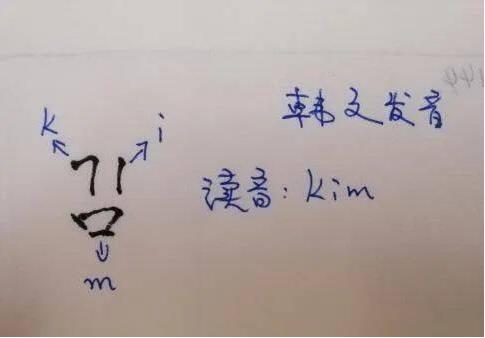 韩文发音
k i
김
读音: Kim
m